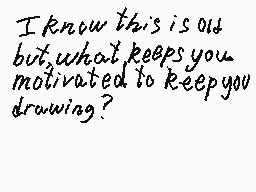 I know this is old
but, what keeps you
motivated to keep you
drawing?